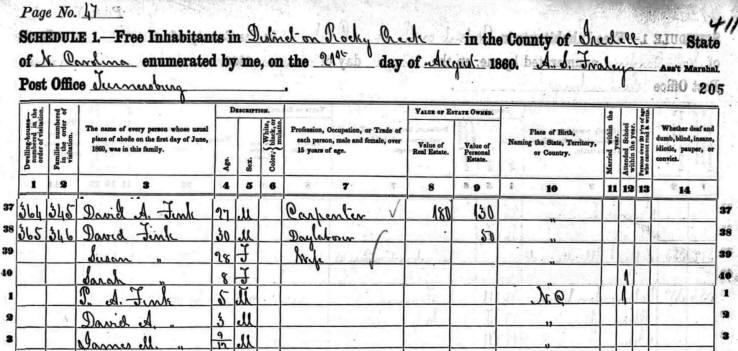 Page No. 47
411
SCHEDULE 1.—Free Inhabitants in District on Rocky Creek in the County of Iredell State
of N. Carolina enumerated by me, on the 21st day of August 1860. A. S. Fraley Ass't Marshal.
Post Office Turnersburg 205
Dwelling-house—numbered in the order of visitation.
Families numbered in the order of visitation.
The name of every person whose usual place of abode on the first day of June, 1860, was in this family.
DESCRIPTION.
Age.
Sex.
Color, White, black, or mulatto.
Profession, Occupation, or Trade of each person, male and female, over 15 years of age.
VALUE OF ESTATE OWNED.
Value of Real Estate.
Value of Personal Estate.
Place of Birth, Naming the State, Territory, or Country.
Married within the year.
Attended School within the year.
Persons over 20 y'rs of age who cannot read & write.
Whether deaf and dumb, blind, insane, idiotic, pauper, or convict.
1 2 3 4 5 6 7 8 9 10 11 12 13 14
37 364 345 David A. Fink 27 M Carpenter 180 130 " 37
38 365 346 David Fink 30 M Daylabour 50 " 38
39 Susan " 28 F Wife " 39
40 Sarah " 8 F " 1 40
1 P. A. Fink 5 M N.C 1 1
2 David A. " 3 M " 2
3 James M. " 9/12 M " 3